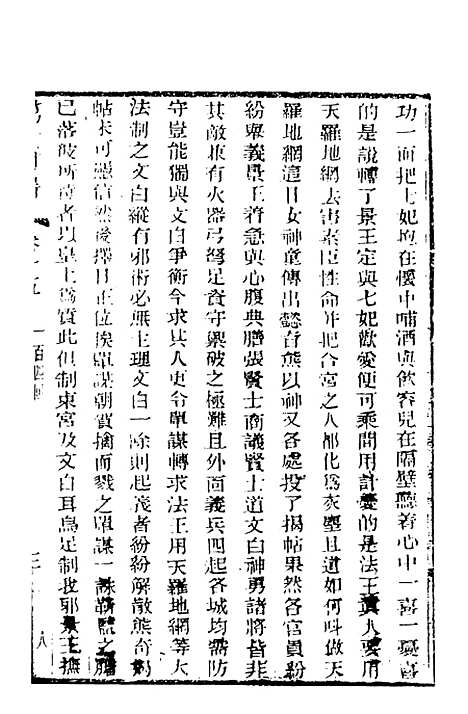 功一面把七妃摟在懷中哺酒與飲容兒在隔壁聽着心中一喜一憂喜
的是說轉了景王定與七妃歡愛便可乘間用計憂的是法王眞人要用
天羅地網去害素臣性命并把合宮之人都化爲灰塵且道如何叫做天
羅地網這日女神童傳出懿旨熊以神又各處投了揭帖果然各官員紛
紛舉義景王着急與心腹典膳張賢士商議賢士道文白神勇諸將皆非
其敵兼有火器弓弩足資守禦破之極難且外面義兵四起各城均需防
守豈能獨與文白爭衡今求其人更令單謀轉求法王用天羅地網等大
法制之文白縱有邪術必無生理文白一除則起義者紛紛解散熊奇揭
帖未可憑信然後擇日正位挨單謀朝賀擒而戮之單謀一誅靳監之膽
已落彼所奇者以皇上爲質此但制東宮及文白耳烏足制我耶景王撫
卷之五
一百四
八